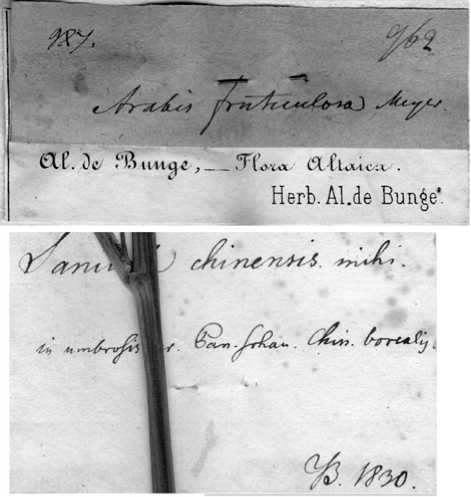 987. 962
Arabis fruticulosa Meyer.
Al. de Bunge, — Flora Altaica.
Herb. Al. de Bunge.
chinensis. mihi.
in umbrosis Pan-schan. Chin. borealis.
B. 1830.